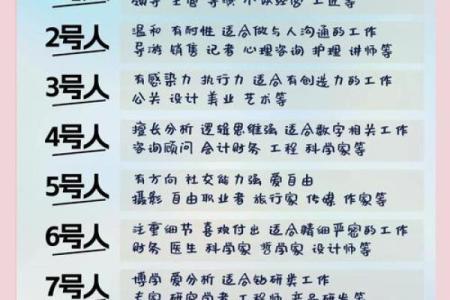 2号人
温和 有耐性 适合做与人沟通的工作
导游 销售 记者 心理咨询 护理 讲师等
3号人
有感染力 执行力 适合有创造力的工作
公关 设计 美业 艺术等
4号人
擅长分析 逻辑思维强 适合数字相关工作
咨询顾问 会计财务 工程 科学家等
5号人
有方向 社交能力强 爱自由
摄影 自由职业者 旅行家 传媒 作家等
6号人
注重细节 喜欢付出 适合精细严密的工作
财务 医生 科学家 哲学家 设计师等
7号人
博学 爱分析 适合钻研类工作
专家 研究学者 工程师 产品研发等